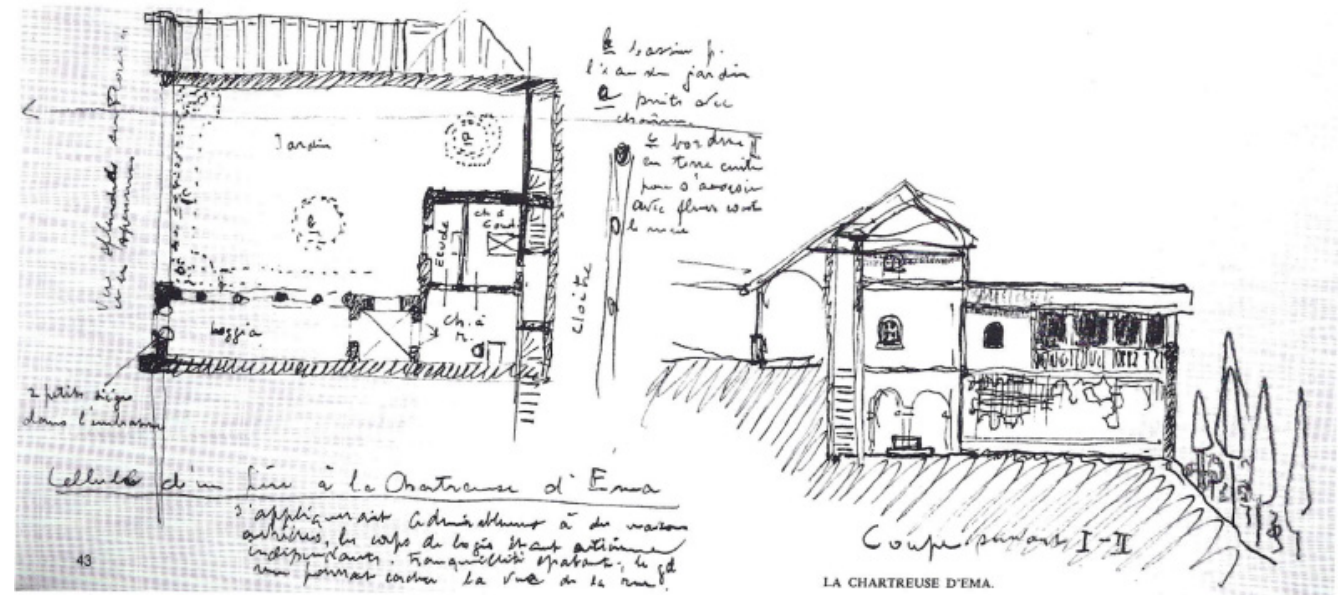 Vue splendide sur
Jardin
B
P
Etude
ch à
Couch
Loggia
Ch. à
M.
Cloître
b bassin p.
l'eau du jardin
a puits avec
chaîne
c bordure
en terre cuite
pour s'asseoir
avec fleurs cont
le mur
II
2 petits sièges
dans l'embrasure
Cellule d'un frère à la Chartreuse d'Ema
s'appliquerait admirablement à des maisons
ouvrières, les corps de logis étant entièrement
indépendants. Tranquillité épatante; le gd
mur pourrait cacher la vue de la rue
43
Coupe suivant I-II
LA CHARTREUSE D'EMA.